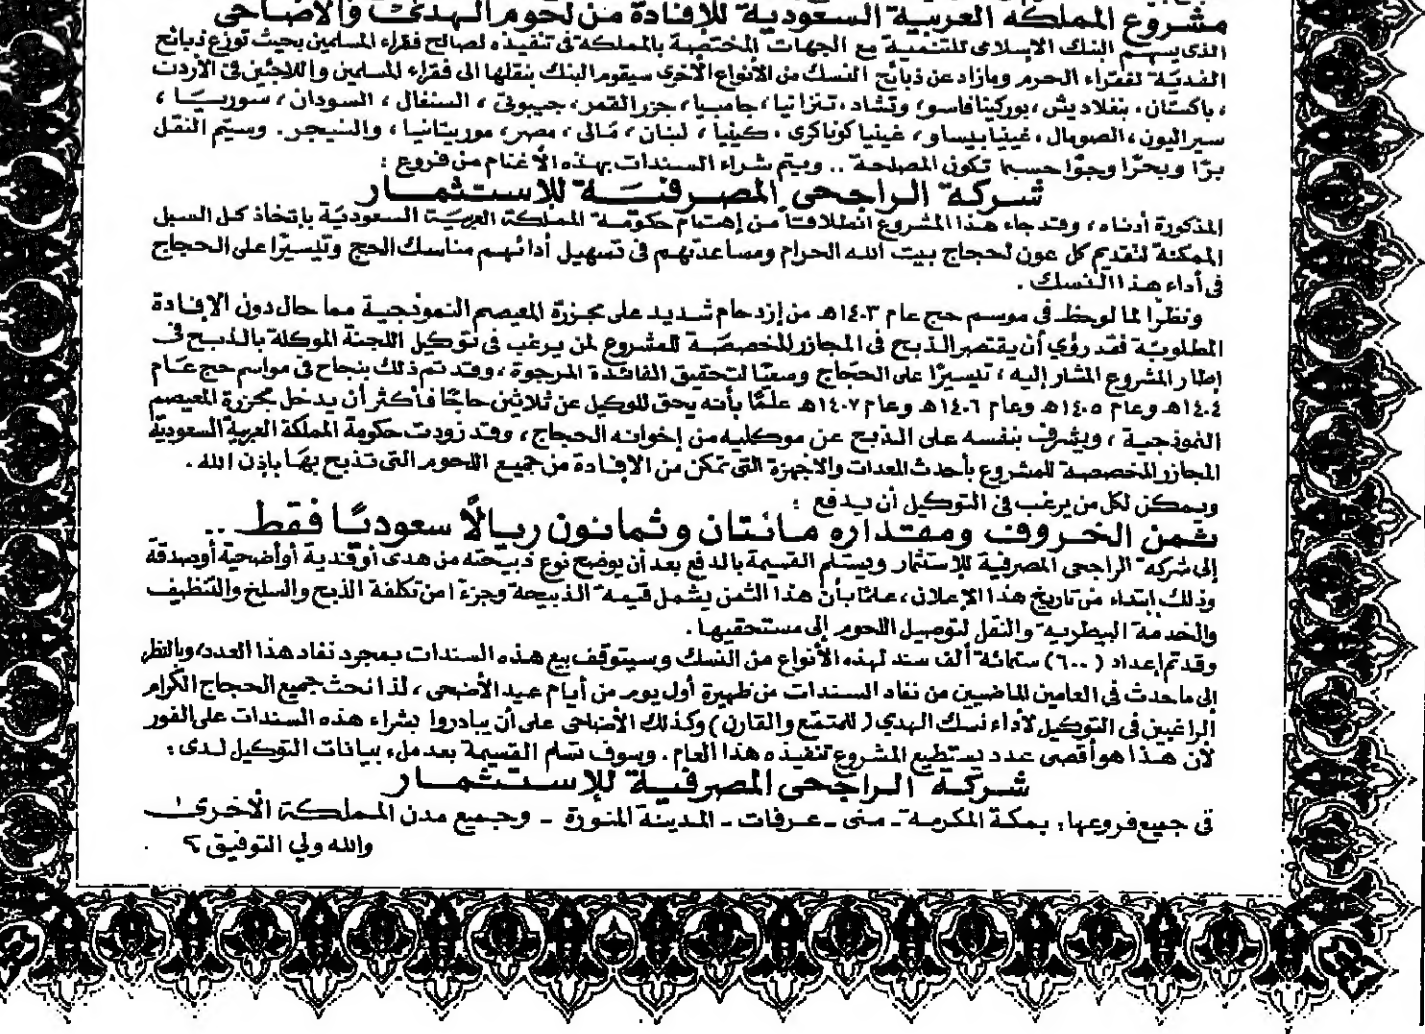 مشروع المملكة العربية السعودية للإفادة من لحوم الهدي والأضاحي
الذي يسهم البنك الإسلامي للتنمية مع الجهات المختصة بالمملكة في تنفيذه لصالح فقراء المسلمين بحيث توزع ذبائح
الفدية لفقراء الحرم ومازاد عن ذبائح النسك من الأنواع الأخرى سيقوم البنك بنقلها الى فقراء المسلمين واللاجئين في الأردن
، باكستان ، بنغلاديش ، بوركينافاسو ، وتشاد ، تنزانيا ، جامبيا ، جزر القمر ، جيبوتي ، السنغال ، السودان ، سوريا ،
سيراليون ، الصومال ، غينيا بيساو ، غينيا كوناكري ، كينيا ، لبنان ، مالي ، مصر ، موريتانيا ، والنيجر . وسيتم النقل
برًا وبحرًا وجوًا حسبما تكون المصلحة .. ويتم شراء السندات بهذه الأغنام من فروع :
شركة الراجحي المصرفية للإستثمار
المذكورة أدناه ، وقد جاء هذا المشروع انطلاقاً من إهتمام حكومة المملكة العربية السعودية بإتخاذ كل السبل
الممكنة لتقديم كل عون لحجاج بيت الله الحرام ومساعدتهم في تسهيل أدائهم مناسك الحج وتيسيرًا على الحجاج
في أداء هذا النسك .
ونظرًا لما لوحظ في موسم حج عام ١٤٠٣ هـ من إزدحام شديد على مجزرة المعيصم النموذجية مما حال دون الإفادة
المطلوبة فقد رؤي أن يقتصر الذبح في المجازر المخصصة للمشروع لمن يرغب في توكيل اللجنة الموكلة بالذبح في
إطار المشروع المشار إليه ، تيسيرًا على الحجاج وسعيًا لتحقيق الفائدة المرجوة ، وقد تم ذلك بنجاح في مواسم حج عام
١٤٠٤ هـ وعام ١٤٠٥ هـ وعام ١٤٠٦ هـ وعام ١٤٠٧ هـ علمًا بأنه يحق للوكيل عن ثلاثين حاجًا فأكثر أن يدخل مجزرة المعيصم
النموذجية ، ويشرف بنفسه على الذبح عن موكليه من إخوانه الحجاج ، وقد زودت حكومة المملكة العربية السعودية
المجازر المخصصة للمشروع بأحدث المعدات والأجهزة التي تمكن من الإفادة من جميع اللحوم التي تذبح بها بإذن الله .
ويمكن لكل من يرغب في التوكيل أن يدفع :
ثمن الخروف ومقتداره مائتان وثمانون ريالاً سعوديًا فقط ..
إلى شركة الراجحي المصرفية للإستثمار ويستلم القسيمة بالدفع بعد أن يوضح نوع ذبيحته من هدى أو فدية أو أضحية أو صدقة
وذلك إبتداء من تاريخ هذا الإعلان ، علمًا بأن هذا الثمن يشمل قيمة الذبيحة وجزءًا من تكلفة الذبح والسلخ والتنظيف
والخدمة البيطرية والنقل لتوصيل اللحوم إلى مستحقيها .
وقد تم إعداد (٦٠٠) ستمائة ألف سند لهذه الأنواع من النسك وسيتوقف بيع هذه السندات بمجرد نفاد هذا العدد ، وبالنظر
إلى ماحدث في العامين الماضيين من نفاد السندات من ظهيرة أول يوم من أيام عيد الأضحى ، لذا نحث جميع الحجاج الكرام
الراغبين في التوكيل لأداء نسك الهدي ( للمتمتع والقارن ) وكذلك الأضاحي على أن يبادروا بشراء هذه السندات على الفور
لأن هذا هو أقصى عدد يستطيع المشروع تنفيذه هذا العام . وسوف تسلم القسيمة بعد ملء بيانات التوكيل لدى :
شركة الراجحي المصرفية للإستثمار
في جميع فروعها : بمكة المكرمة - منى - عرفات - المدينة المنورة - وجميع مدن المملكة الأخرى
والله ولي التوفيق